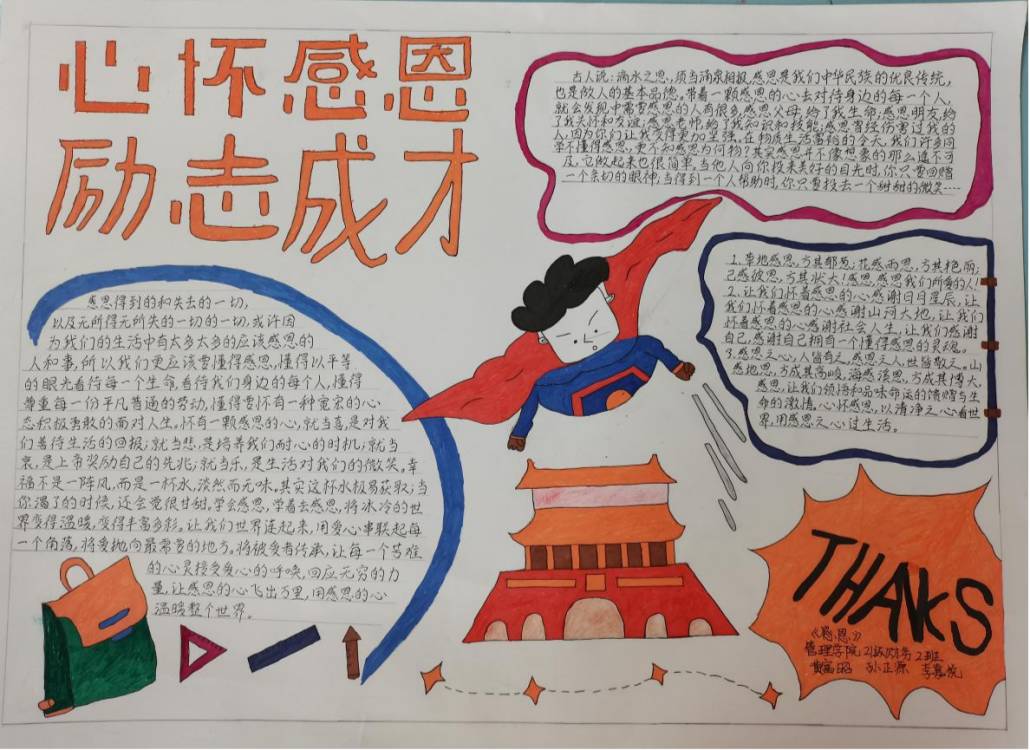 心怀感恩
励志成才
古人说:滴水之恩,须当涌泉相报,感恩是我们中华民族的优良传统,
也是做人的基本品德。带着一颗感恩的心去对待身边的每一个人,
就会发现中需要感恩的人有很多,感恩父母,给了我生命;感恩朋友,给
了我关怀和友谊;感恩老师,给了我知识和技能;感恩曾经伤害过我的
人,因为你们让我变得更加坚强。在物质生活富裕的今天,我们许多同
学不懂得感恩,更不知感恩为何物?其实感恩并不像想象的那么遥不可
及,它做起来也很简单,当他人向你投来美好的目光时,你只需回赠
一个亲切的眼神;当得到一个人帮助时,你只要投去一个甜甜的微笑……
1.草地感恩,方其郁葱;花感雨恩,方其艳丽;
己感彼恩,方其状大!感恩,感恩我们所爱的人!
2.让我们怀着感恩的心感谢日月星辰,让
我们怀着感恩的心感谢山河大地,让我们
怀着感恩的心感谢社会人生,让我们感谢
自己,感谢自己拥有一个懂得感恩的灵魂。
3.感恩之心,人皆有之,感恩之人,世皆敬之。山
感地恩,方成其高峻,海感溪恩,方成其博大,
感恩,让我们领悟和品味命运的馈赠与生
命的激情,心怀感恩,以清净之心看世
界,用感恩之心过生活。
感恩得到的和失去的一切,
以及无所得无所失的一切的一切,或许因
为我们的生活中有太多太多的应该感恩的
人和事,所以我们更应该要懂得感恩,懂得以平等
的眼光看待每一个生命,看待我们身边的每个人,懂得
尊重每一份平凡普通的劳动,懂得要怀有一种宽宏的心
态积极勇敢的面对人生。怀有一颗感恩的心,就当喜,是对我
们善待生活的回报;就当悲,是培养我们耐心的时机;就当
哀,是上帝奖励自己的先兆;就当乐,是生活对我们的微笑。幸
福不是一阵风,而是一杯水,淡然而无味。其实这杯水极易获取,当
你渴了的时候,还会觉很甘甜。学会感恩,学着去感恩,将冰冷的世
界变得温暖,变得丰富多彩。让我们世界连起来,用爱心串联起每
一个角落,将爱抛向最需要的地方。将被爱者传承,让每一个苦难
的心灵接受爱心的呼唤,回应无穷的力
量,让感恩的心飞出万里,用感恩的心
温暖整个世界。
THANKS
《感恩》
管理学院21级财务2班
孙正源